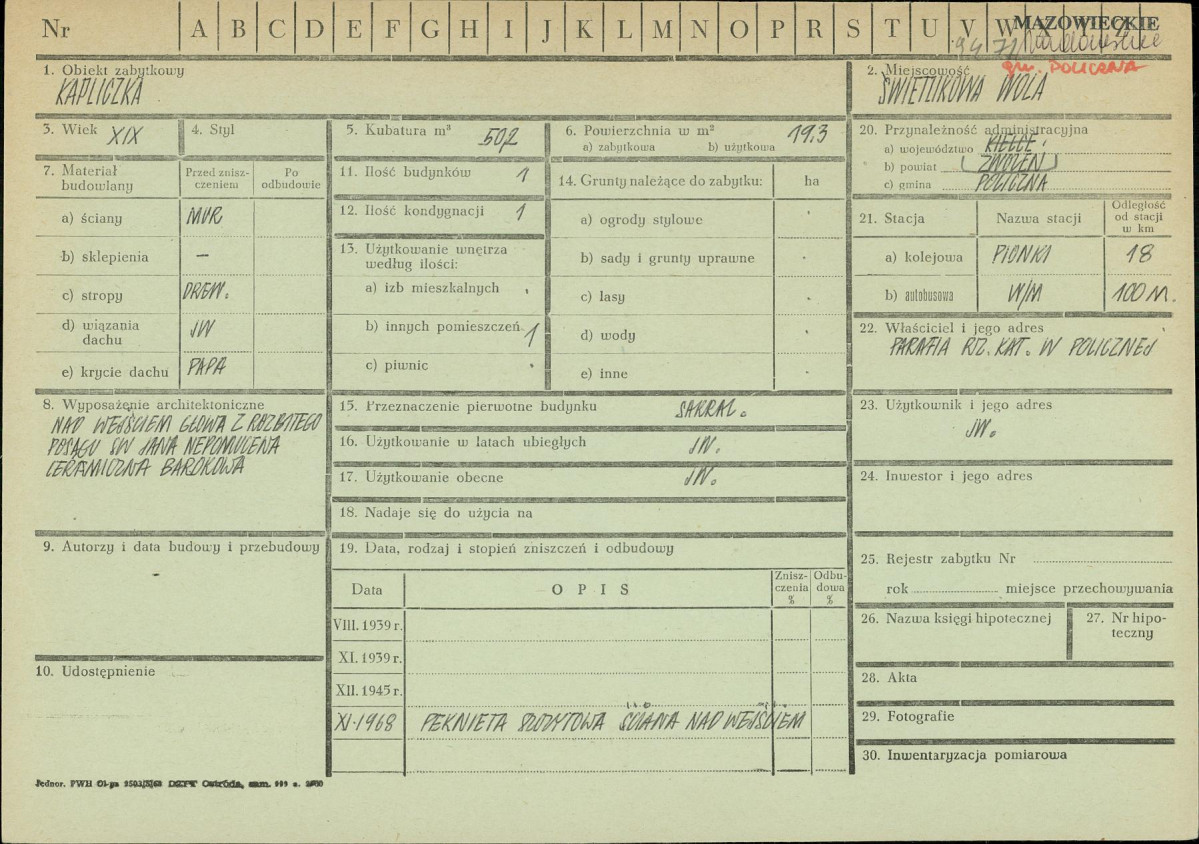 Nr A B C D E F G H I J K L M N O P R S T U V W X Y Z
MAZOWIECKIE
gm. POLICZNA
1. Obiekt zabytkowy
KAPLICZKA
2. Miejscowość
ŚWIETLIKOWA WOLA
3. Wiek XIX
4. Styl
5. Kubatura m³ 50,2
6. Powierzchnia w m²
a) zabytkowa b) użytkowa 19,3
7. Materiał budowlany
Przed znisz-
czeniem
Po
odbudowie
a) ściany MUR
b) sklepienia —
c) stropy DREW.
d) wiązania
dachu JW
e) krycie dachu PAPA
8. Wyposażenie architektoniczne
NAD WEJŚCIEM GŁOWA Z ROZBITEGO
POSĄGU ŚW JANA NEPOMUCENA
CERAMICZNA BAROKOWA
9. Autorzy i data budowy i przebudowy
-
10. Udostępnienie
11. Ilość budynków 1
12. Ilość kondygnacji 1
13. Użytkowanie wnętrza
według ilości:
a) izb mieszkalnych
b) innych pomieszczeń 1
c) piwnic
14. Grunty należące do zabytku: ha
a) ogrody stylowe
b) sady i grunty uprawne
c) lasy
d) wody
e) inne
15. Przeznaczenie pierwotne budynku SAKRAL.
16. Użytkowanie w latach ubiegłych JW.
17. Użytkowanie obecne JW.
18. Nadaje się do użycia na
19. Data, rodzaj i stopień zniszczeń i odbudowy
Data OPIS
Znisz-
czenia
%
Odbu-
dowa
%
VIII. 1939 r.
XI. 1939 r.
XII. 1945 r.
XI.1968 PĘKNIĘTA SZCZYTOWA ŚCIANA NAD WEJŚCIEM
20. Przynależność administracyjna
a) województwo KIELCE
b) powiat ZWOLEŃ
c) gmina POLICZNA
21. Stacja Nazwa stacji
Odległość
od stacji
w km
a) kolejowa PIONKI 18
b) autobusowa W/M 100 M.
22. Właściciel i jego adres
PARAFIA RZ. KAT. W POLICZNEJ
23. Użytkownik i jego adres
JW.
24. Inwestor i jego adres
25. Rejestr zabytku Nr
rok miejsce przechowywania
26. Nazwa księgi hipotecznej
27. Nr hipo-
teczny
28. Akta
29. Fotografie
30. Inwentaryzacja pomiarowa